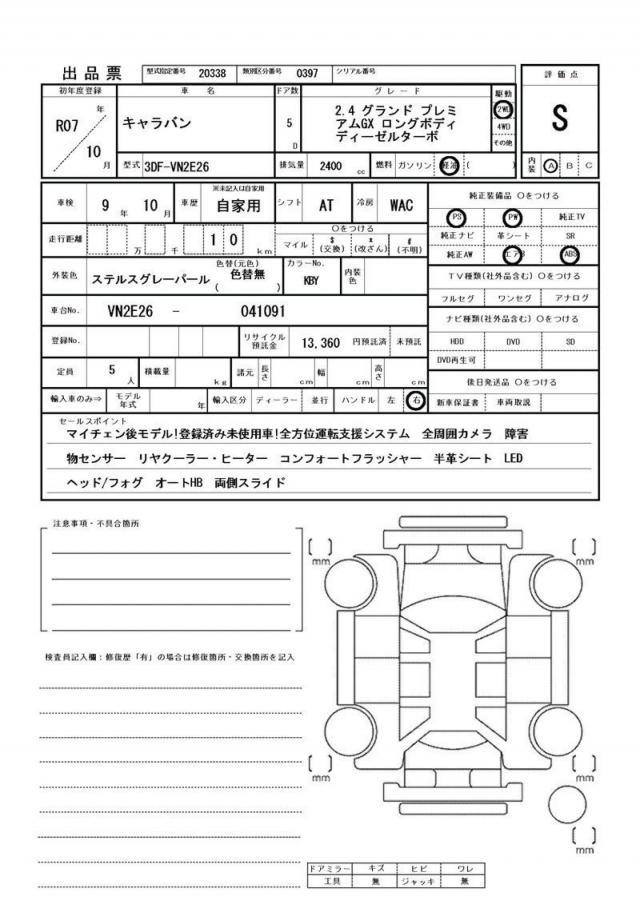 出品票 型式指定番号 20338 類別区分番号 0397 シリアル番号
評価点
初年度登録 車名 ドア数 グレード 駆動
R07 年 10 月
キャラバン
5 D
2.4 グランド プレミ
アムGX ロングボディ
ディーゼルターボ
2WD
4WD
その他
S
型式 3DF-VN2E26 排気量 2400 cc 燃料 ガソリン 軽油 ( )
内装 A B C
車検 9 年 10 月 車歴 ※未記入は自家用 自家用 シフト AT 冷房 WAC
純正装備品 ○をつける
PS PW 純正TV
走行距離 万 千 1 0 km ○をつける
マイル $ (交換) * (改ざん) # (不明)
純正ナビ 革シート SR
純正AW エアB ABS
外装色 ステルスグレーパール 色替(元色) ( 色替無 ) カラーNo. KBY 内装色
TV種類(社外品含む) ○をつける
フルセグ ワンセグ アナログ
車台No. VN2E26 - 041091
ナビ種類(社外品含む) ○をつける
登録No. リサイクル預託金 13,360 円預託済 未預託
HDD DVD SD
DVD再生可
定員 5 人 積載量 kg 諸元 長さ cm 幅 cm 高さ cm
後日発送品 ○をつける
輸入車のみ⇒ モデル年式 年 輸入区分 ディーラー 並行 ハンドル 左 右
新車保証書 車両取説
セールスポイント
マイチェン後モデル!登録済み未使用車!全方位運転支援システム 全周囲カメラ 障害
物センサー リヤクーラー・ヒーター コンフォートフラッシャー 半革シート LED
ヘッド/フォグ オートHB 両側スライド
注意事項・不具合箇所
検査員記入欄:修復歴「有」の場合は修復箇所・交換箇所を記入
[ ] mm
[ ] mm
[ ] mm
[ ] mm
[ ] mm
ドアミラー キズ ヒビ ワレ
工具 無 ジャッキ 無